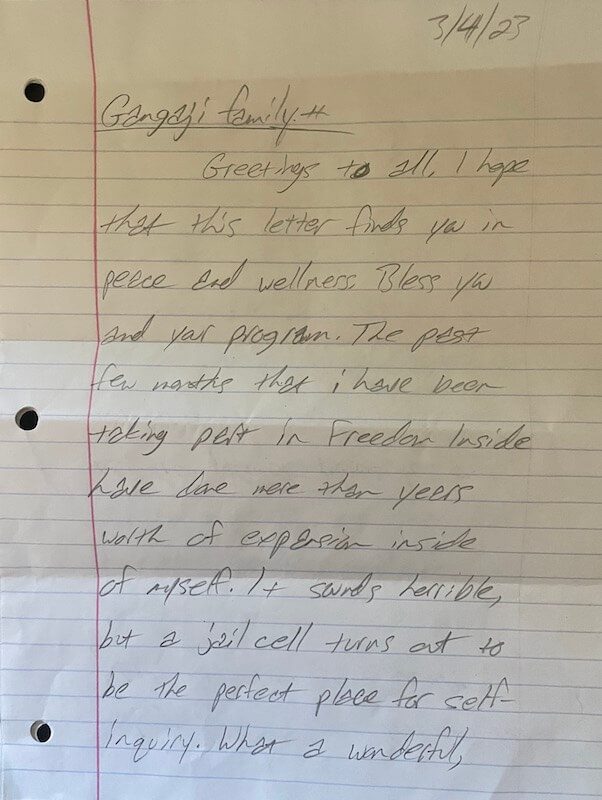 3/4/23
Gangaji family.#
Greetings to all. I hope
that this letter finds you in
peace and wellness. Bless you
and your program. The past
few months that i have been
taking part in Freedom Inside
have done more than years
worth of expansion inside
of myself. It sounds horrible,
but a jail cell turns out to
be the perfect place for self-
Inquiry. What a wonderful,